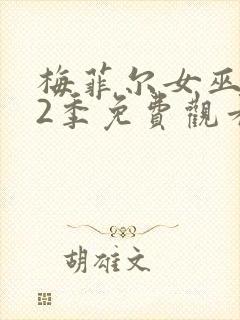 梅菲尔女巫
2季免費觀看
胡雄文